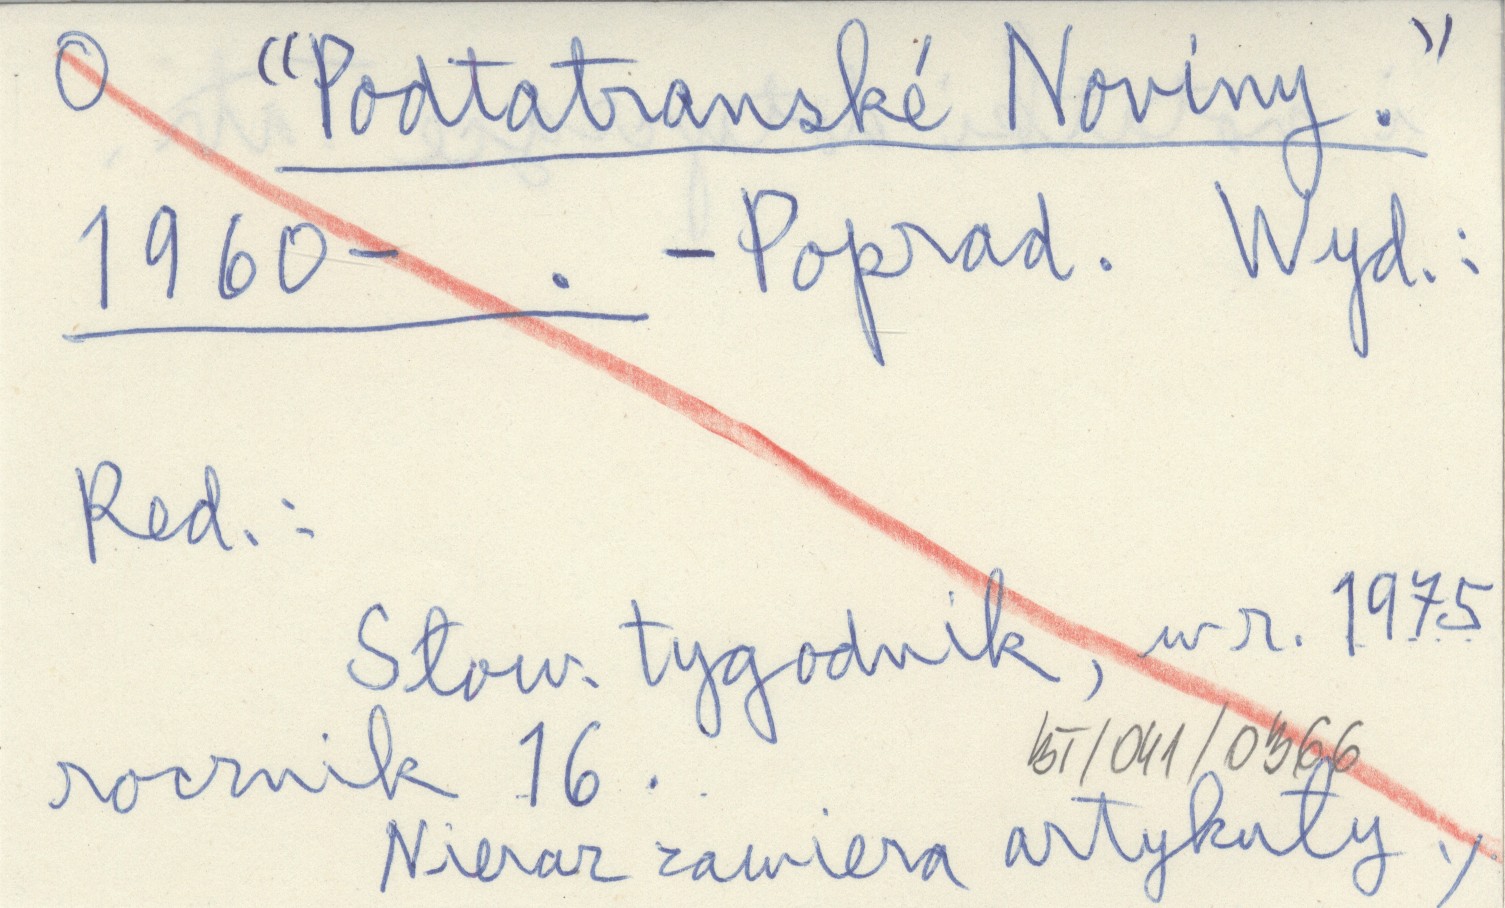 O "Podtatranské Noviny."
1960- . - Poprad. Wyd.:
Red.:
Słow. tygodnik, w r. 1975
rocznik 16.
BT/041/0366
Nieraz zawiera artykuły ./